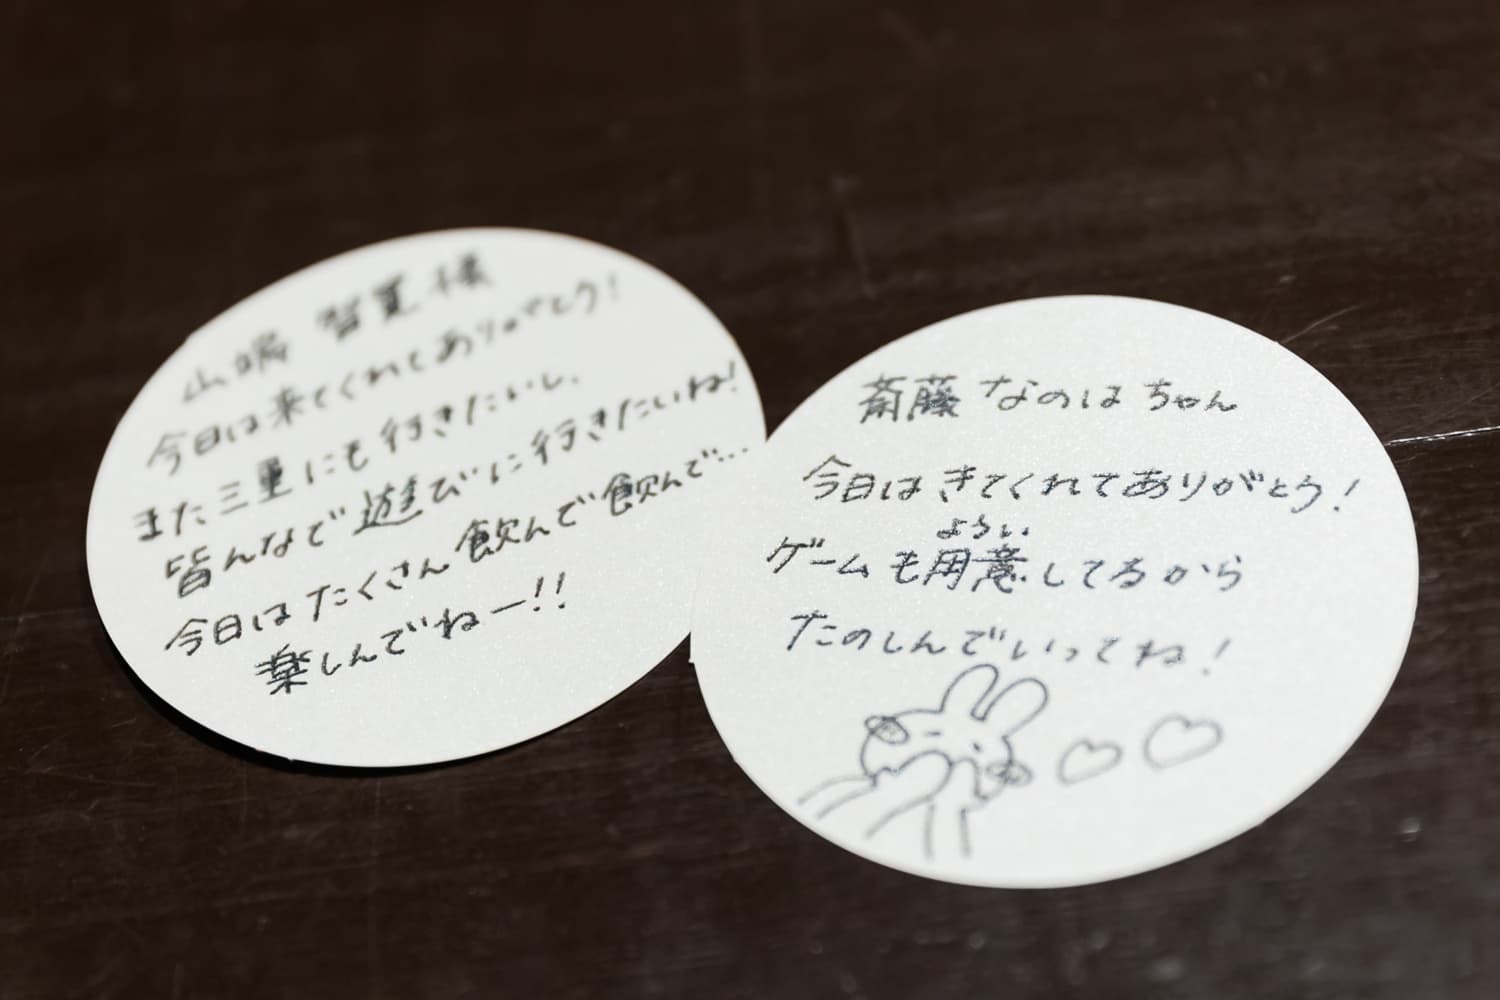 山端 智里 様
今日は来てくれてありがとう!
また三重にも行きたいし、
皆んなで遊びに行きたいね!
今日はたくさん飲んで飲んで…
楽しんでねー!!
斎藤 なのは ちゃん
今日は きてくれてありがとう!
ようい
ゲームも用意してるから
たのしんでいってね!